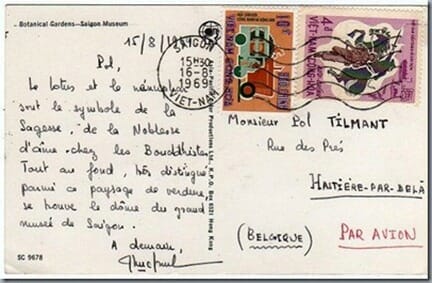 Botanical Gardens—Saigon Museum
15/8/19
Pol,
Le lotus et le nénuphar
sont le symbole de la
Sagesse, de la Noblesse
d'âme chez les Bouddhistes.
Tout au fond, très distingué
parmi ce paysage de verdure,
se trouve le dôme du grand
musée de Saigon.
A demain,
SC 9678
Productions Ltd., K.P.O. Box 6521 Hong Kong
SAIGON
15H30
16-8
1969
VIET-NAM
VIET-NAM CONG-HOA
4đ
VIET-NAM CONG-HOA
Monsieur Pol TILMANT
Rue des Prés
HASTIÈRE-PAR-DELÀ
(BELGIQUE)
PAR AVION